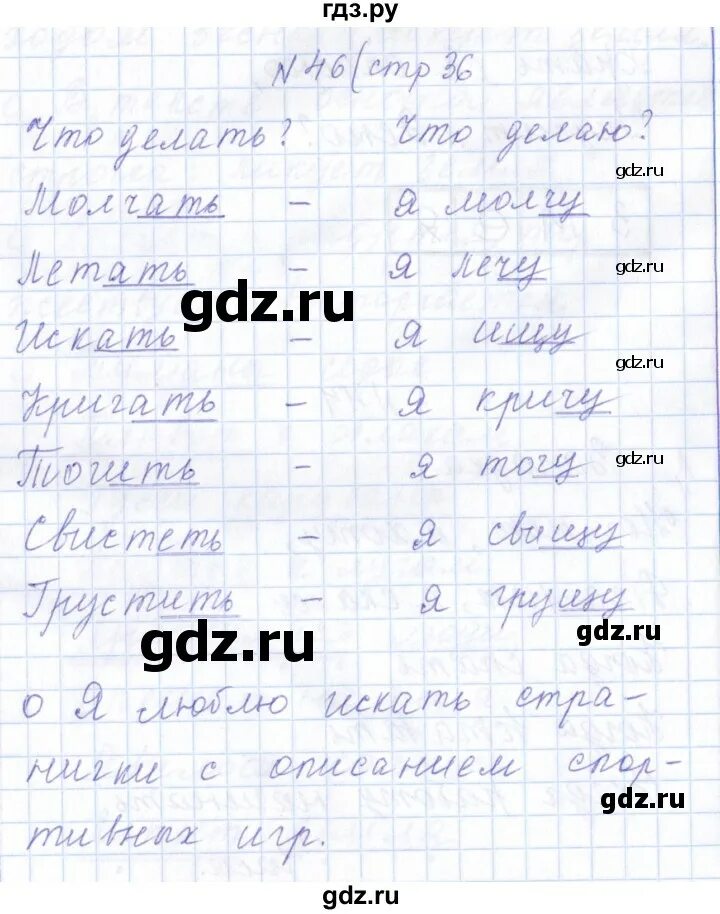 гдз.ру
N 46 (стр 36
Что делать? Что делаю?
gdz.ru
Молчать – я молчу
Летать – я лечу
gdz.ru
gdz.ru
Искать – я ищу
gdz.ru
Кричать – я кричу
Точить – я точу
gdz.ru
Свистеть – я свищу
Грустить – я грущу
gdz.ru
gdz.ru
о Я люблю искать стра-
нички с описанием спор-
gdz.ru
тивных игр.
gdz.ru